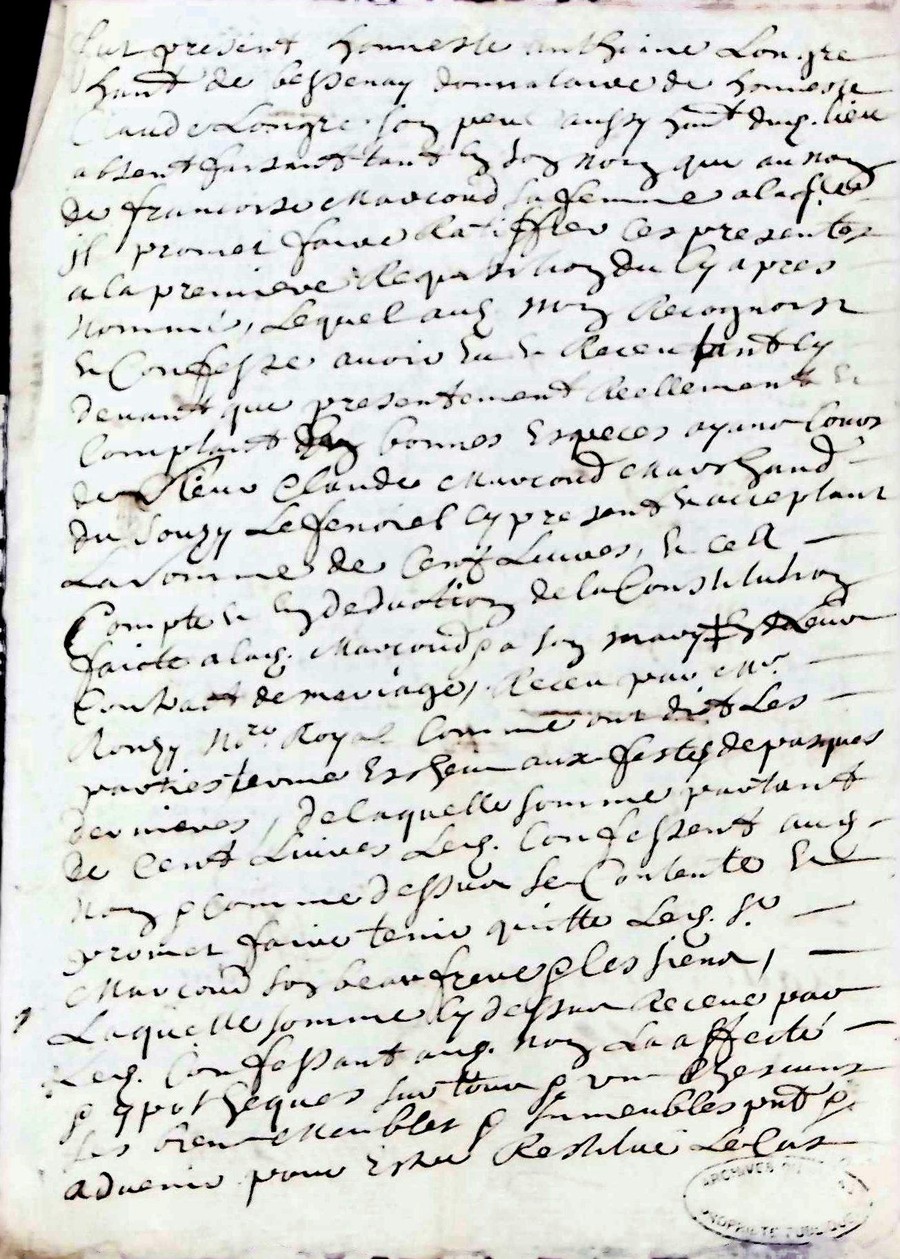 fut present honneste anthoine Longre
hant de bessenay donnataire de honneste
Claude Longre son pere aussy hant dud. lieu
absent faisant tant en son nom que au nom
de francoise Marcoud sa femme a laq.lle
il promet faire Ratiffier ces presentes
a la premiere Requisition du cy apres
nommé, Lequel aud. nom Recognoist
et Confesse avoir eu et Receu tant cy
devant que presentement Reellement et
Comptant en bonnes Especes ayant Cours
de sieur Claude Marcoud Marchand
du Souzy Le fenoiel cy present et acceptant
La somme de Cent Livres, et ce a
Compte et en deduction de la Constitution
faicte a lad. Marcoud p a son mary en Leur
Contract de mariage, Receu par Me.
Ronzy n.re Royal Comme ont dit Les
parties terme Escheu aux festes de pasques
dernieres, de laquelle somme partant
de Cent Livres Led. Confessant aud.
nom p Comme dessus se Contente et
promet faire tenir quitte Led. Sr
Marcoud son beau frere p les siens,
Laquelle somme cy dessus Receue par
Led. Confessant aud. nom La affecté
p ypotheques sur tous p un Chescuns
ses biens Meubles p immeubles pnt p
advenir pour Estre Restitué Le Cas
ARCHIVES
PROPRIETE PUBLIQUE